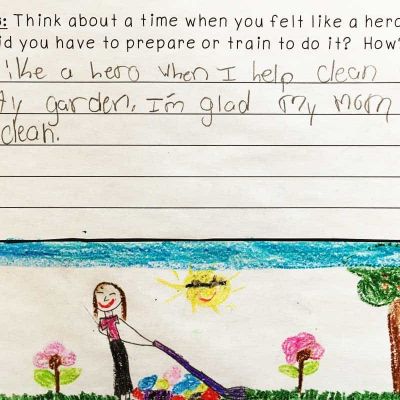 s: Think about a time when you felt like a hero
id you have to prepare or train to do it? How?
like a hero when I help clean
ty garden. I'm glad my mom
clean.